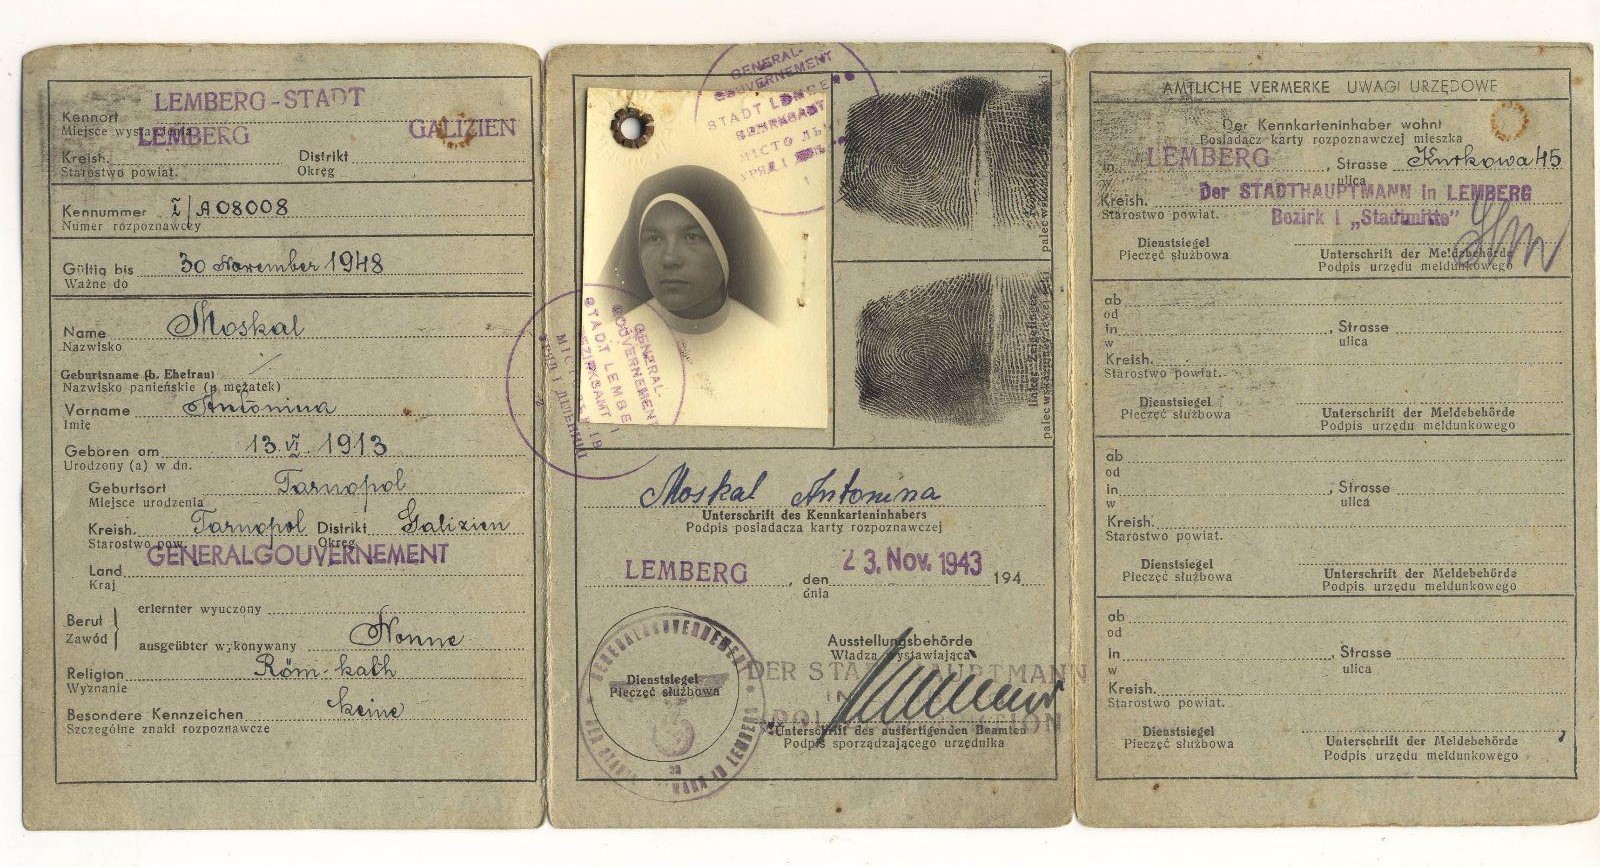 LEMBERG-STADT
Kennort
Miejsce wystawienia
LEMBERG GALIZIEN
Kreish. Distrikt
Starostwo powiat. Okręg
Kennummer I/A08008
Numer rozpoznawczy
Gültig bis 30 November 1948
Ważne do
Name Moskal
Nazwisko
Geburtsname (b. Ehefrau)
Nazwisko panieńskie (p mężatek)
Vorname Antonina
Imię
Geboren am 13.VI.1913
Urodzony (a) w dn.
Geburtsort Tarnopol
Miejsce urodzenia
Kreish. Tarnopol Distrikt Galizien
Starostwo pow. Okręg
GENERALGOUVERNEMENT
Land
Kraj
Beruf
Zawód
erlernter wyuczony
ausgeübter wykonywany Nonne
Religion Röm-kath
Wyznanie
Besondere Kennzeichen keine
Szczególne znaki rozpoznawcze
GENERAL-
GOUVERNEMENT
STADT LEMBERG
BEZIRKSAMT
МІСТО
1
GENERAL-
GOUVERNEMENT
STADT LEMBE
BEZIRKSAMT 1
Moskal Antonina
Unterschrift des Kennkarteninhabers
Podpis posiadacza karty rozpoznawczej
LEMBERG, den 23. Nov. 1943 194
dnia
Ausstellungsbehörde
Władza wystawiająca
DER STADTHAUPTMANN
IN
GENERALGOUVERNEMENT
Dienstsiegel
Pieczęć służbowa
Unterschrift des ausfertigenden Beamten
Podpis sporządzającego urzędnika
AMTLICHE VERMERKE UWAGI URZĘDOWE
Der Kennkarteninhaber wohnt
Posiadacz karty rozpoznawczej mieszka
in LEMBERG, Strasse Kurkowa 45
w ulica
Der STADTHAUPTMANN in LEMBERG
Kreish.
Starostwo powiat.
Bezirk I „Stadtmitte"
Dienstsiegel Unterschrift der Meldebehörde
Pieczęć służbowa Podpis urzędu meldunkowego
ab
od
in , Strasse
w ulica
Kreish.
Starostwo powiat.
Dienstsiegel Unterschrift der Meldebehörde
Pieczęć służbowa Podpis urzędu meldunkowego
ab
od
in , Strasse
w ulica
Kreish.
Starostwo powiat.
Dienstsiegel Unterschrift der Meldebehörde
Pieczęć służbowa Podpis urzędu meldunkowego
ab
od
in , Strasse
w ulica
Kreish.
Starostwo powiat.
Dienstsiegel Unterschrift der Meldebehörde
Pieczęć służbowa Podpis urzędu meldunkowego